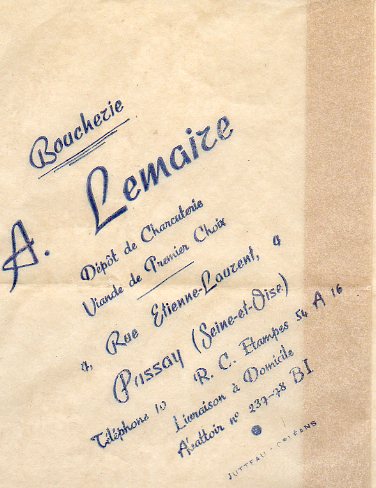 Boucherie
A. Lemaire
Dépôt de Charcuterie
Viande de Premier Choix
4, Rue Etienne-Laurent, 4
Pussay (Seine-et-Oise)
Téléphone 10 R. C. Etampes 54 A 16
Livraison à Domicile
Abattoir n° 237-78 BI
JUTTEAU - ORLÉANS